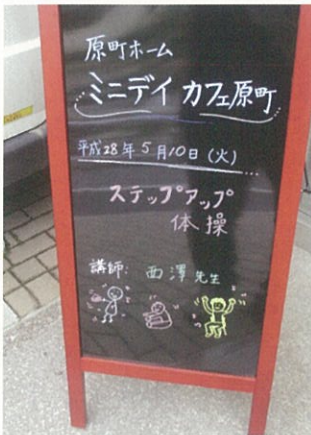 原町ホーム
ミニデイ カフェ原町
平成28年5月10日(火)
ステップアップ
体操
講師: 西澤先生